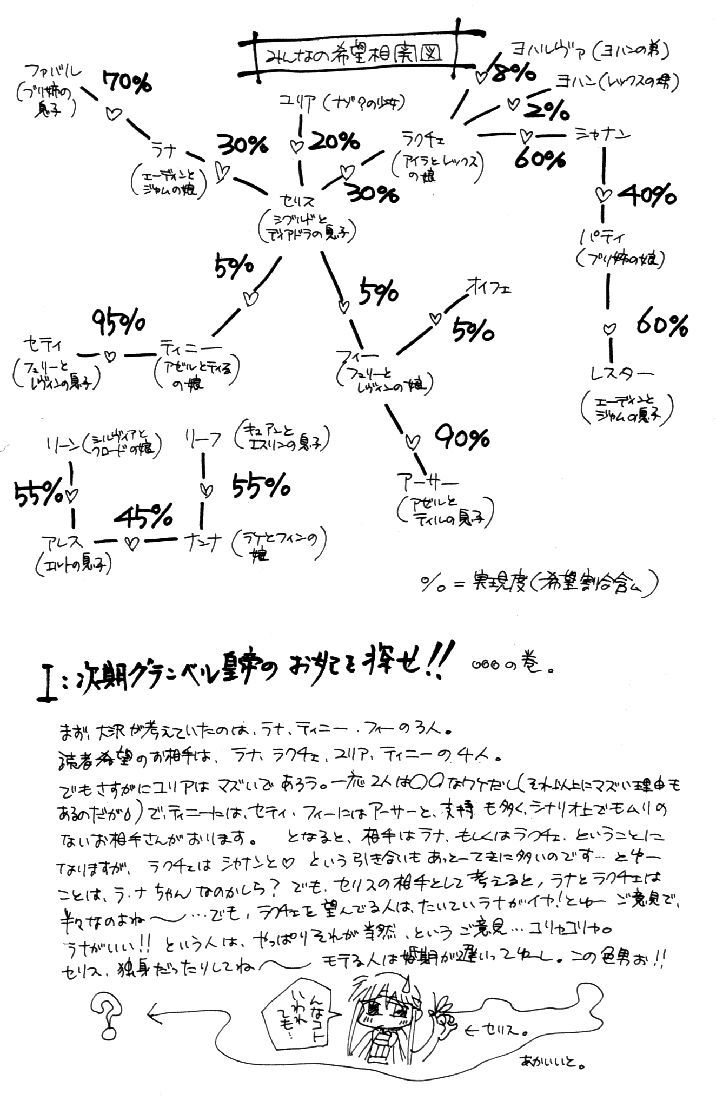 みんなの希望相関図
ヨハルヴァ(ヨハンの弟)
8%
ヨハン(レックスの甥)
2%
ファバル
(ブリ姉の
息子)
70%
ユリア(ナゾ?の少女)
20%
ラクチェ
(アイラとレックス
の娘)
60%
シャナン
ラナ
(エーディンと
ジャムの娘)
30%
30%
40%
セリス
(シグルドと
ディアドラの息子)
パティ
(ブリ姉の娘)
5%
5%
オイフェ
5%
60%
95%
セティ
(フュリーと
レヴィンの息子)
ティニー
(アゼルとティル
の娘)
フィー
(フュリーと
レヴィンの娘)
レスター
(エーディンと
ジャムの息子)
リーン(シルヴィアと
クロードの娘)
リーフ
(キュアンと
エスリンの息子)
90%
55%
45%
55%
アーサー
(アゼルと
ティルの息子)
アレス
(エルトの息子)
ナンナ
(ラケとフィンの
娘)
%=実現度(希望割合含ム)
I:次期グランベル皇帝の おあいてを探せ!! 。。。の巻。
まず、大沢が考えていたのは、ラナ、ティニー・フィーの3人。
読者希望のお相手は、ラナ、ラクチェ、ユリア、ティニーの4人。
でもさすがにユリアは マズいであろう。一応2人は○○なワケだし(それ以上にマズい理由も
あるのだが)で、ティニーには、セティ・フィーにはアーサーと、支持も多く、シナリオ上でもムリの
ないお相手さんがおります。 となると、相手はラナ、もしくはラクチェ、ということに
なりますが、ラクチェは シャナンと♡ という引き合いもあっとーてきに多いのです…とゆー
ことは、ラ・ナちゃんなのかしら? でも、セリスの相手として考えると、ラナとラクチェは
半々なのよね〜…でも、ラクチェを望んでる人は、たいていラナがイヤ!とゆー ご意見で、
ラナがいい!! という人は、やっぱりそれが当然、というご意見…コリャコリャ。
セリス、独身だったりしてね〜 モテる人は婚期が遅いってゆーし。この色男お!!
んなコト
いわれ
ても…
?
←セリス。
あかいいと。